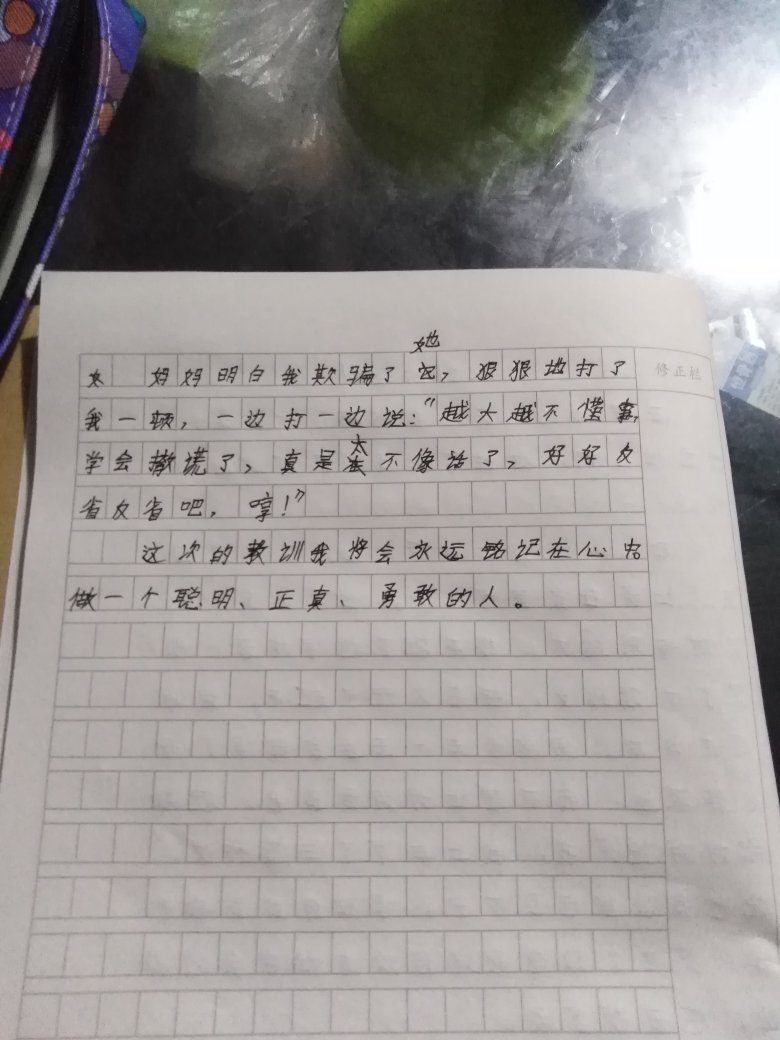 她
妈妈明白我欺骗了它,狠狠地打了 修正栏
我一顿,一边打一边说:“越大越不懂事,
太
学会撒谎了,真是不像话了,好好反
省反省吧,哼!”
这次的教训我将会永远铭记在心中
做一个聪明、正真、勇敢的人。